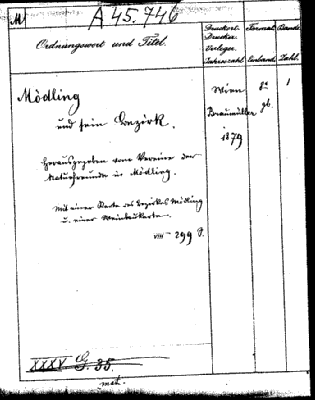 M
A 45.746
Ordnungswort und Titel.
Druckort.
Drucker.
Verleger.
Jahreszahl.
Format.
Einband.
Bände.
Zahl.
Mödling
und sein Bezirk.
Herausgegeben vom Vereine der
Naturfreunde in Mödling.
Mit einer Karte des Bezirkes Mödling
u. einer Weinbaukarte.
VIII – 299 S.
Wien
Braumüller
1879
8°
gb.
1
XXXV G. 35.